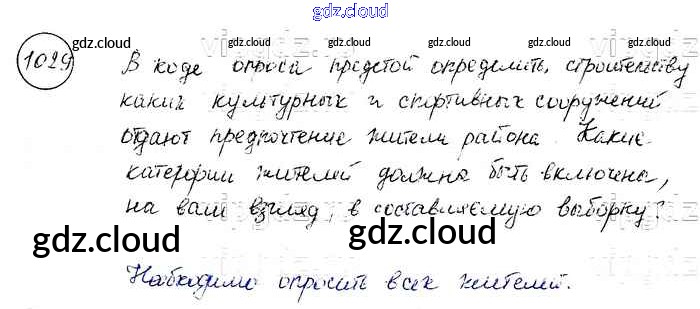 gdz.cloud
1029
gdz.cloud gdz.cloud gdz.cloud gdz.cloud
В ходе опроса предстой определить, строительству
каких культурных и спортивных сооружений
отдают предпочтение жители района. Какие
категории жителей должна быть включена,
на ваш взгляд, в составляемую выборку?
gdz.cloud gdz.cloud gdz.cloud
Необходимо опросить всех жителей.